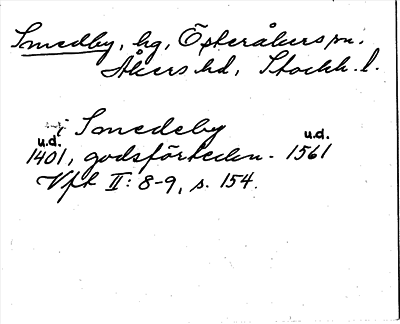 Smedby, hg, Österåkers sn.
Åkers hd, Stockh. l.
i Smedeby
u.d. u.d.
1401, godsförteckn. 1561
Vft II: 8-9, s. 154.